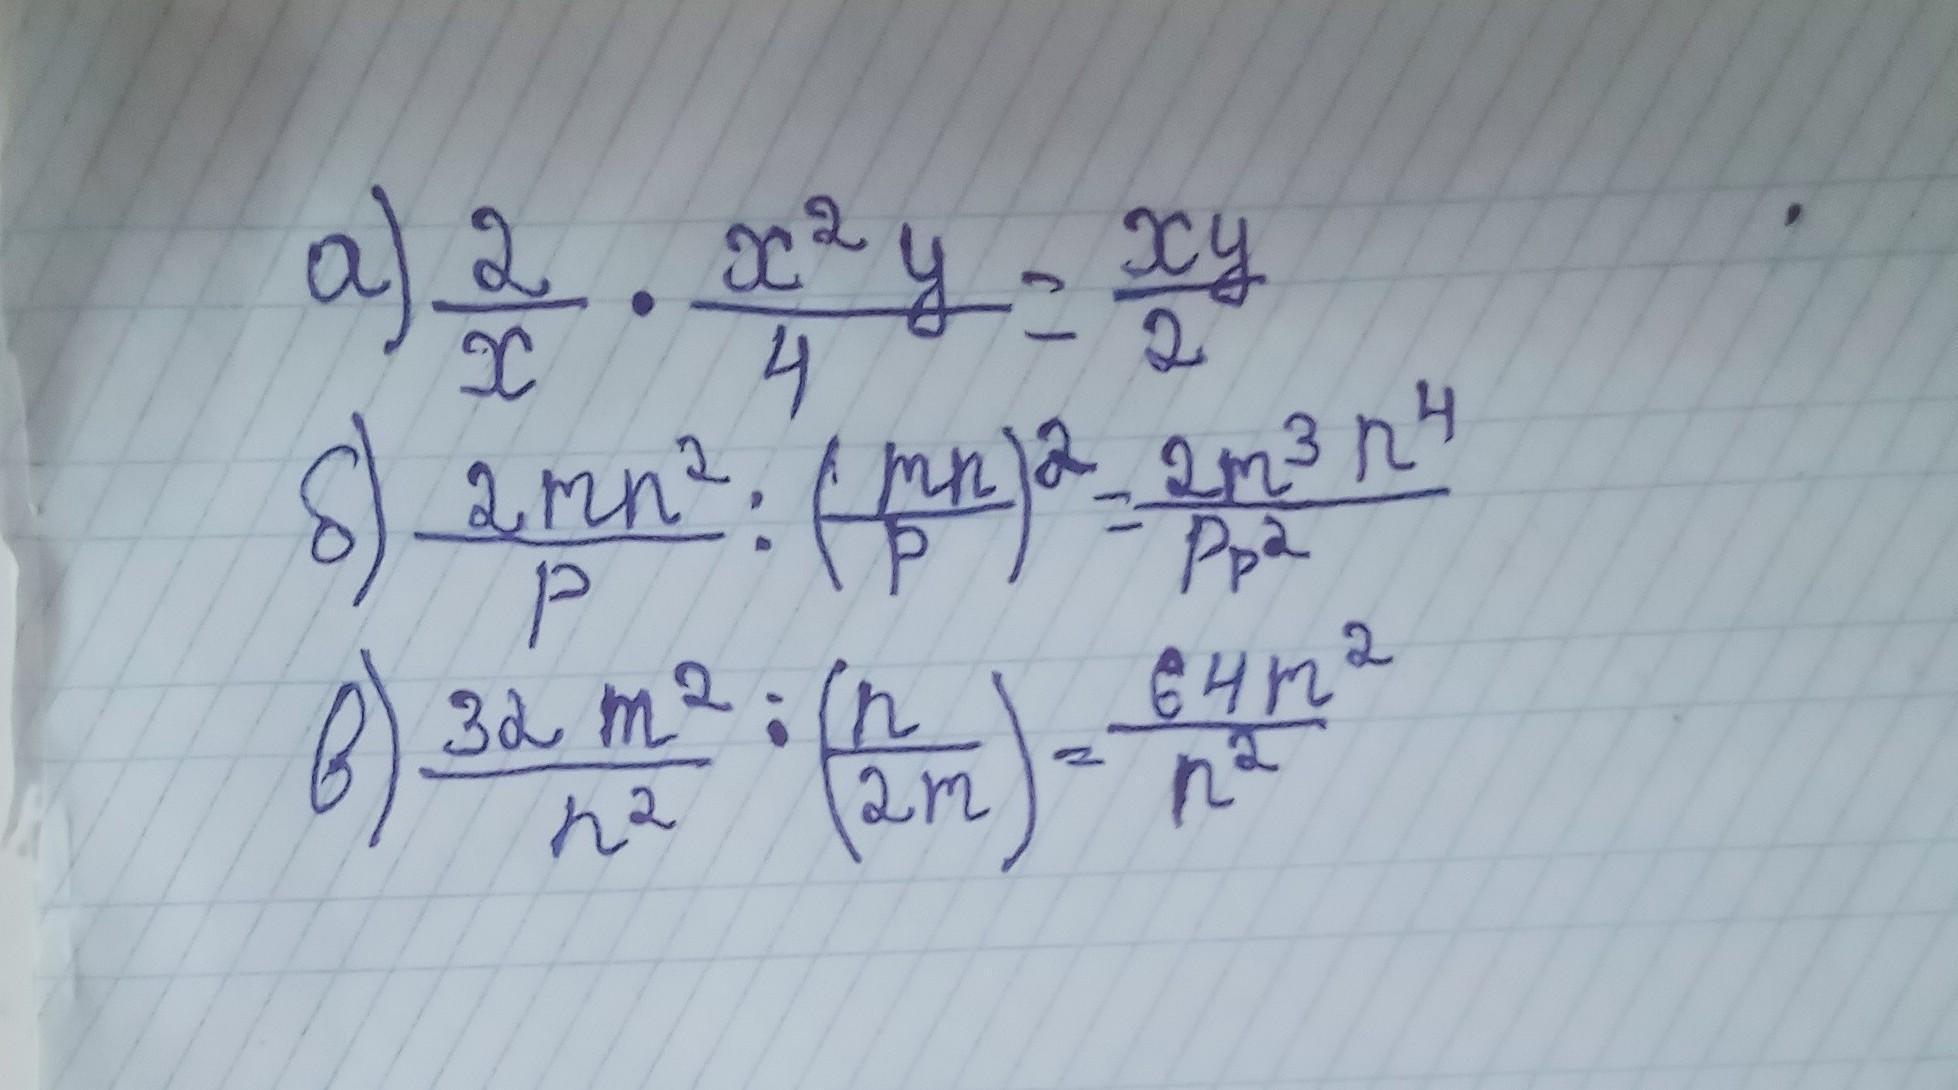 а) 2/x · x² y/4 = xy/2
б) 2mn²/p : (mn/p)² = 2m³ n⁴/pp²
в) 32 m²/n² : (n/2m) = 64m²/n²